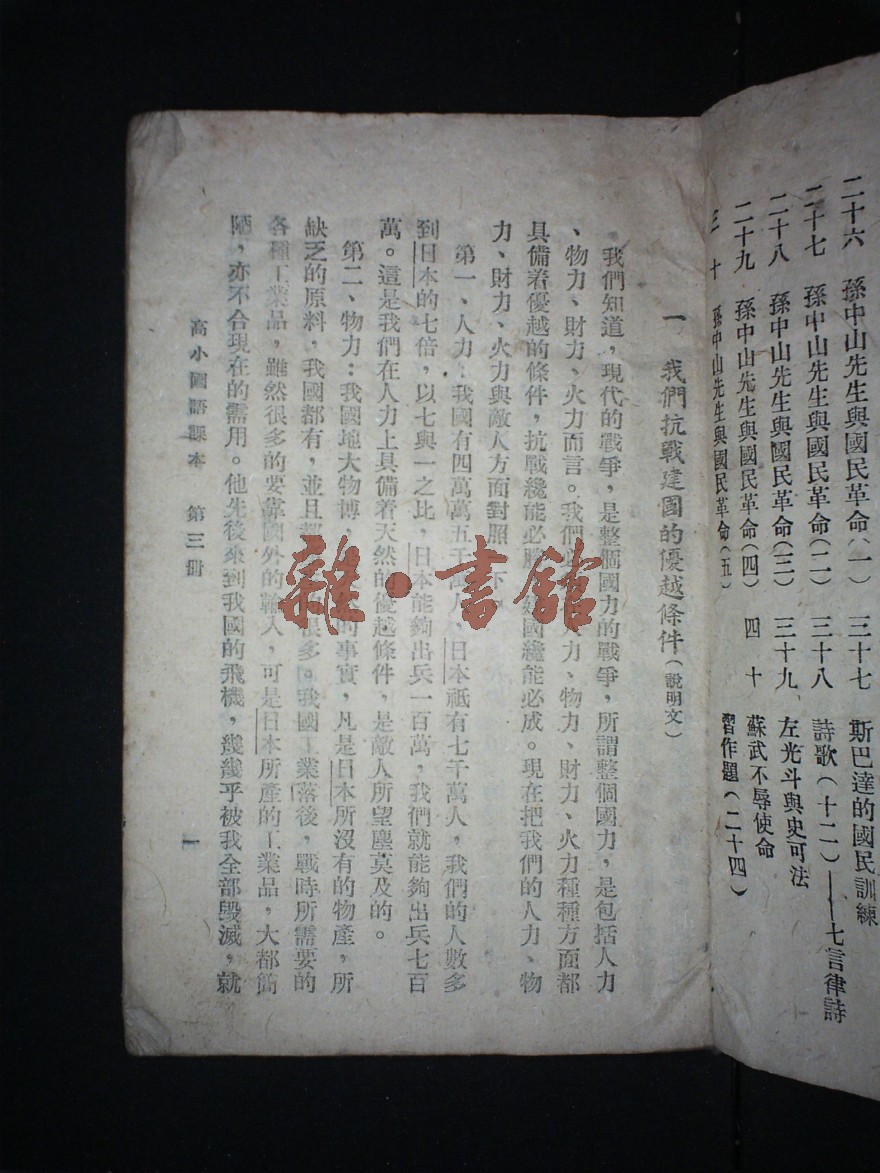 二十六 孫中山先生與國民革命(一)
二十七 孫中山先生與國民革命(二)
二十八 孫中山先生與國民革命(三)
二十九 孫中山先生與國民革命(四)
三十 孫中山先生與國民革命(五)
三十七 斯巴達的國民訓練
三十八 詩歌(十二)——七言律詩
三十九 左光斗與史可法
四十 蘇武不辱使命
習作題(二十四)
一 我們抗戰建國的優越條件(說明文)
我們知道,現代的戰爭,是整個國力的戰爭,所謂整個國力,是包括人力
、物力、財力、火力而言。我們 力、物力、財力、火力種種方面都
具備着優越的條件,抗戰纔能必勝 國纔能必成。現在把我們的人力、物
力、財力、火力與敵人方面對照 下
第一、人力:我國有四萬萬五千萬人,日本祗有七千萬人,我們的人數多
到日本的七倍,以七與一之比,日本能夠出兵一百萬,我們就能夠出兵七百
萬。這是我們在人力上具備着天然的優越條件,是敵人所望塵莫及的。
第二、物力:我國地大物博, 的事實,凡是日本所沒有的物產,所
缺乏的原料,我國都有,並且都 很多。我國工業落後,戰時所需要的
各種工業品,雖然很多的要靠國外的輸入,可是日本所產的工業品,大都簡
陋,亦不合現在的需用。他先後來到我國的飛機,幾幾乎被我全部毀滅,就
高小國語課本 第三冊
一
雜·書館